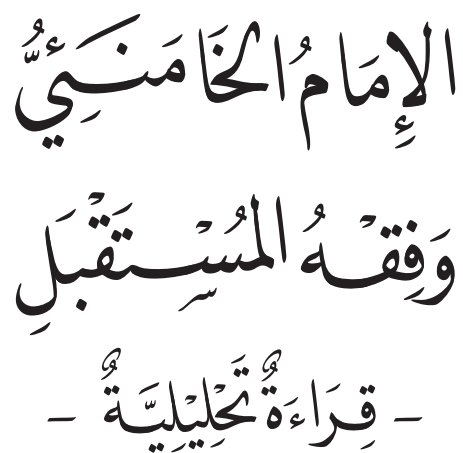 الإِمَامُ الخَامَنَئِيُّ
وَفِقْهُ المُسْتَقْبَلِ
- قِرَاءَةٌ تَحْلِيلِيَّةٌ -